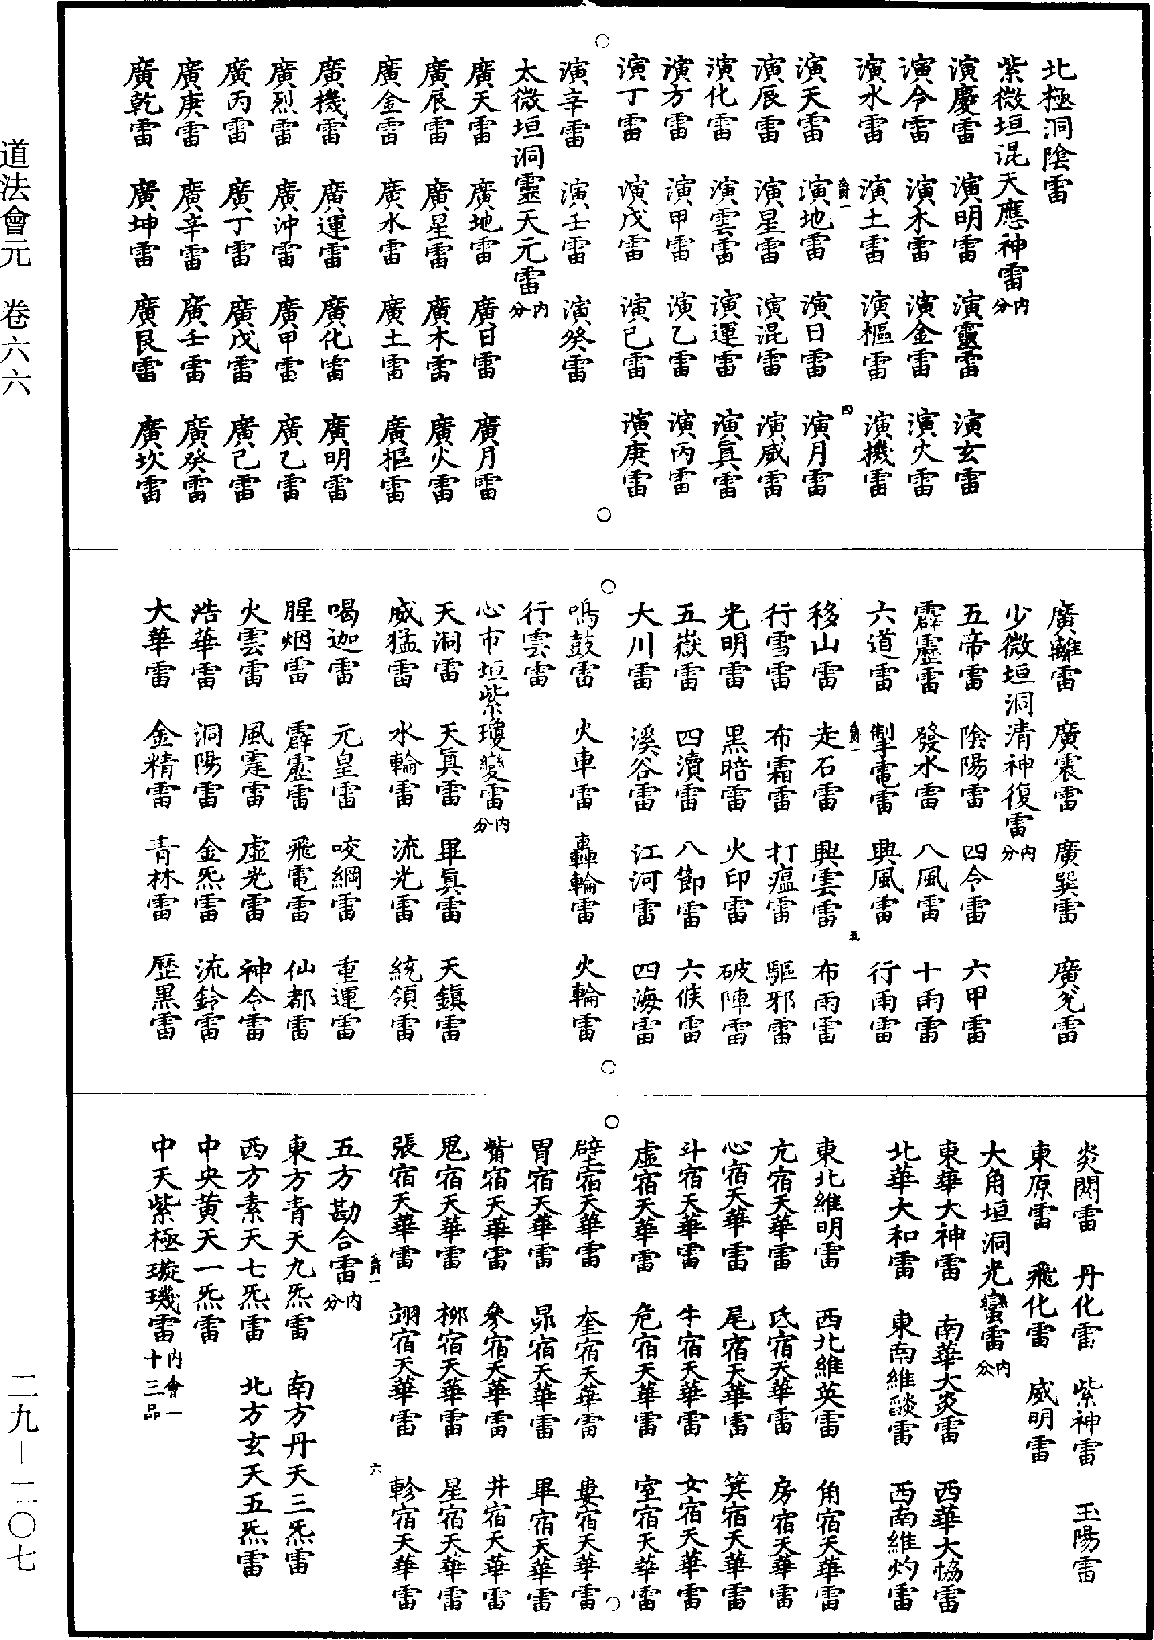 北極洞陰雷
紫微垣混天應神雷內分
演慶雷 演明雷 演靈雷 演玄雷
演令雷 演木雷 演金雷 演火雷
演水雷 演土雷 演樞雷 演機雷
演天雷 演地雷 演日雷 演月雷
演辰雷 演星雷 演混雷 演威雷
演化雷 演雲雷 演運雷 演真雷
演方雷 演甲雷 演乙雷 演丙雷
演丁雷 演戊雷 演己雷 演庚雷
演辛雷 演壬雷 演癸雷
太微垣洞靈天元雷內分
廣天雷 廣地雷 廣日雷 廣月雷
廣辰雷 廣星雷 廣木雷 廣火雷
廣金雷 廣水雷 廣土雷 廣樞雷
廣機雷 廣運雷 廣化雷 廣明雷
廣烈雷 廣沖雷 廣甲雷 廣乙雷
廣丙雷 廣丁雷 廣戊雷 廣己雷
廣庚雷 廣辛雷 廣壬雷 廣癸雷
廣乾雷 廣坤雷 廣艮雷 廣坎雷
廣離雷 廣震雷 廣巽雷 廣兌雷
少微垣洞清神復雷內分
五帝雷 陰陽雷 四令雷 六甲雷
霹靂雷 發水雷 八風雷 十雨雷
六道雷 掣電雷 興風雷 行雨雷
移山雷 走石雷 興雲雷 布雨雷
行雪雷 布霜雷 打瘟雷 驅邪雷
光明雷 黑暗雷 火印雷 破陣雷
五嶽雷 四瀆雷 八節雷 六候雷
大川雷 溪谷雷 江河雷 四海雷
鳴鼓雷 火車雷 轟輪雷 火輪雷
行雲雷
心市垣紫瓊變雷內分
天洞雷 天真雷 畢真雷 天鎮雷
威猛雷 水輪雷 流光雷 統領雷
喝迦雷 元皇雷 咬綱雷 重運雷
腥烟雷 霹靂雷 飛電雷 仙都雷
火雲雷 風霆雷 虛光雷 神令雷
浩華雷 洞陽雷 金炁雷 流鈴雷
大華雷 金精雷 青林雷 歷黑雷
炎閼雷 丹化雷 紫神雷 玉陽雷
東原雷 飛化雷 威明雷
大角垣洞光蠻雷內分
東華大神雷 南華大炎雷 西華大恊雷
北華大和雷 東南維燄雷 西南維灼雷
東北維明雷 西北維英雷 角宿天華雷
亢宿天華雷 氐宿天華雷 房宿天華雷
心宿天華雷 尾宿天華雷 箕宿天華雷
斗宿天華雷 牛宿天華雷 女宿天華雷
虛宿天華雷 危宿天華雷 室宿天華雷
壁宿天華雷 奎宿天華雷 婁宿天華雷
胃宿天華雷 昴宿天華雷 畢宿天華雷
觜宿天華雷 參宿天華雷 井宿天華雷
鬼宿天華雷 柳宿天華雷 星宿天華雷
張宿天華雷 翊宿天華雷 軫宿天華雷
五方勘合雷內分
東方青天九炁雷 南方丹天三炁雷
西方素天七炁雷 北方玄天五炁雷
中央黃天一炁雷
中天紫極璇璣雷內會一十三品
四
五
六
道法會元 卷六六
二九—二〇七